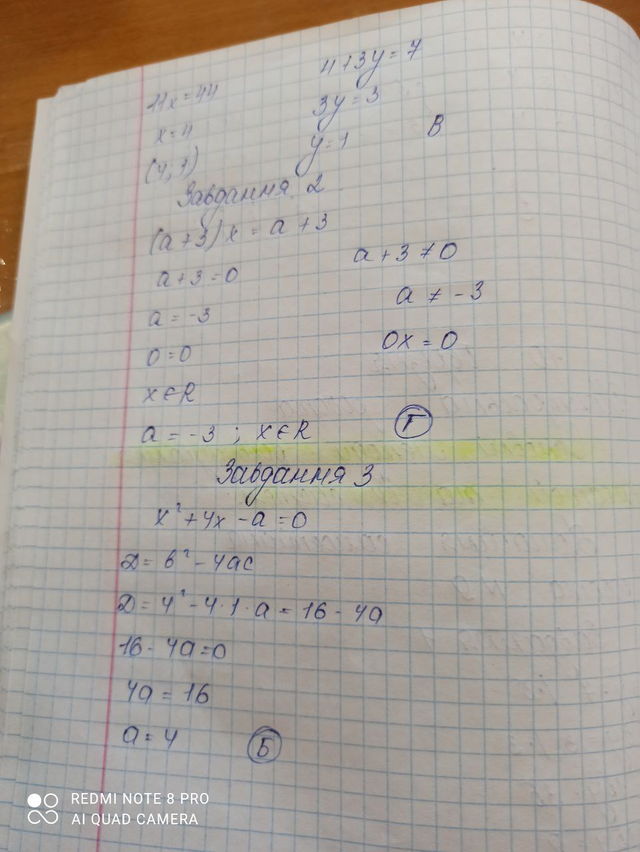 11x = 44
x = 4
(4; 1)
4 + 3y = 7
3y = 3
y = 1
В
Завдання 2
(a + 3) x = a + 3
a + 3 = 0
a = -3
0 = 0
x ∈ R
a + 3 ≠ 0
a ≠ -3
0x = 0
a = -3 ; x ∈ R
Г
Завдання 3
x² + 4x - a = 0
D = b² - 4ac
D = 4² - 4 · 1 · a = 16 - 4a
16 - 4a = 0
4a = 16
a = 4
Б
REDMI NOTE 8 PRO
AI QUAD CAMERA